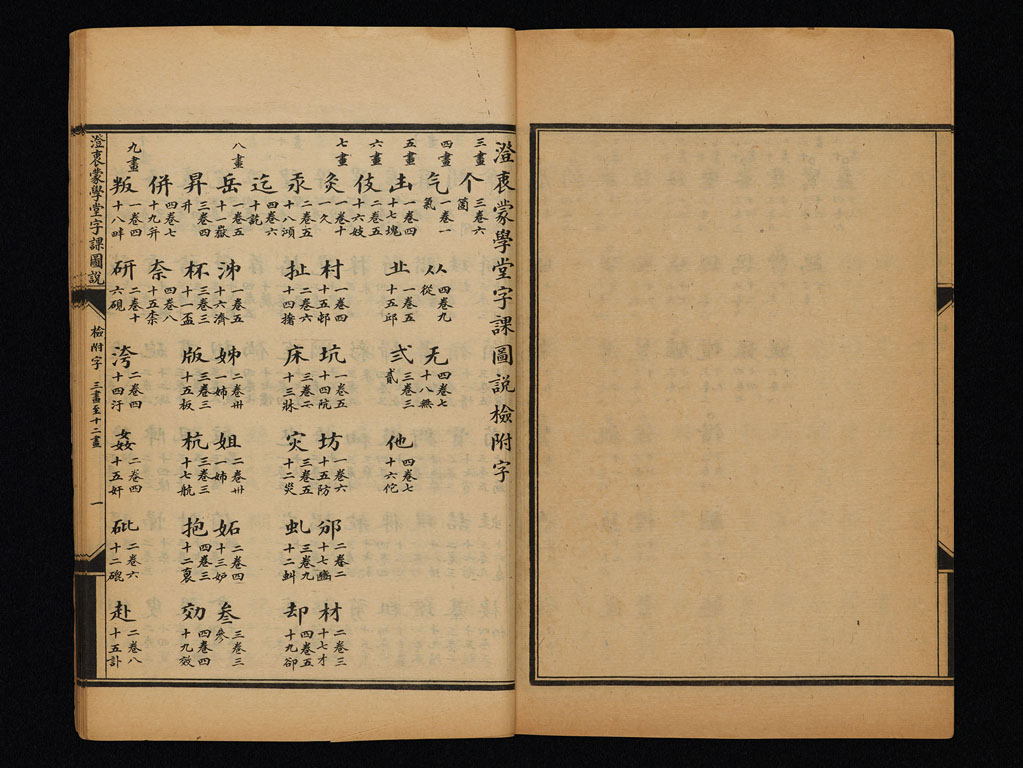 澄衷蒙學堂字課圖說檢附字
三畫 个 三卷六 箇
四畫 气 一卷一 氣 从 四卷九 從 无 四卷七 十八無
五畫 凷 一卷四 十七塊 丠 一卷五 十五邱 弍 三卷三 貳 他 四卷七 十六佗
六畫 伎 二卷五 十六妓
七畫 灸 一卷十 一久 村 一卷四 十五邨 坑 一卷五 十四阬 坊 一卷六 十五防 邠 二卷二 十七豳 材 二卷三 十七才
汞 二卷五 十八澒 扯 二卷六 十四撦 床 三卷二 十三牀 灾 三卷五 十二災 虬 三卷九 十二虯 却 四卷五 十九卻
迄 四卷六 十訖
八畫 岳 一卷五 十一嶽 泲 一卷五 十六濟 姊 二卷卅 一姉 姐 二卷卅 一姉 妬 二卷四 十三妒 叄 三卷三 參
昇 三卷四 升 杯 三卷三 十一盃 版 三卷三 十五板 杭 三卷三 十七航 抱 四卷三 十二裒 効 四卷四 十九效
併 四卷七 十九并 奈 四卷八 十五柰
九畫 叛 一卷四 十八畔 研 二卷十 六硯 洿 二卷四 十四汙 姦 二卷四 十五奸 砒 二卷六 十二磇 赴 二卷八 十五訃
澄衷蒙學堂字課圖說 檢附字 三畫至十二畫 一